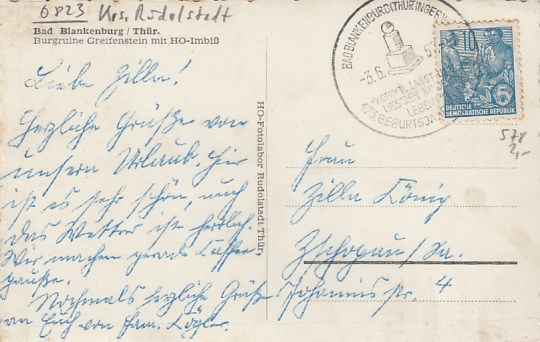 6823 Krs. Rudolstadt
Bad Blankenburg / Thür.
Burgruine Greifenstein mit HO-Imbiß
Liebe Zilla!
Herzliche Grüße von
unserm Urlaub. Hier
ist es sehr schön, auch
das Wetter ist herrlich.
Wir machen gerade Kaffee-
pause.
Nochmals herzliche Grüße
an Euch von Fam.
HO-Fotolabor Rudolstadt Thür.
BAD BLANKENBURG (THÜRINGERW
-3.6. 57
KOMMT, LASST
UNS DEN
LEBEN
175. GEBURTS
10
DEUTSCHE
DEMOKRATISCHE REPUBLIK
578
2,-
Frau
Zilla König
Zschopau/Sa.
Johannisstr. 4